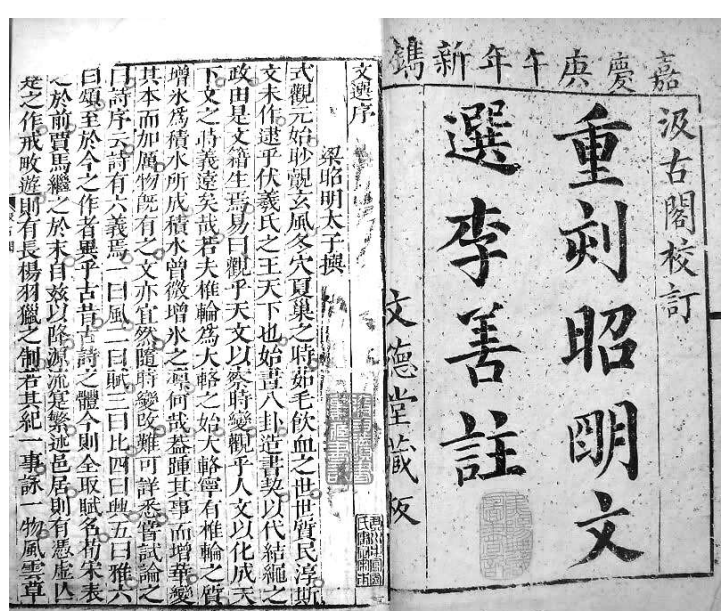 嘉慶庚午年新鐫
汲古閣校訂
重刻昭明文
選李善註
文德堂藏板
文選序
梁昭明太子撰
式觀元始眇覿玄風冬穴夏巢之時茹毛飲血之世世質民淳斯
文未作逮乎伏羲氏之王天下也始畫八卦造書契以代結繩之
政由是文籍生焉易曰觀乎天文以察時變觀乎人文以化成天
下文之時義遠矣哉若夫椎輪爲大輅之始大輅寧有椎輪之質
增冰爲積水所成積水曾微增冰之凜何哉葢踵其事而增華變
其本而加厲物旣有之文亦宜然隨時變改難可詳悉嘗試論之
曰詩序云詩有六義焉一曰風二曰賦三曰比四曰興五曰雅六
曰頌至於今之作者異乎古昔古詩之體今則全取賦名荀宋表
之於前賈馬繼之於末自茲以降源流寔繁述邑居則有憑虛亡
是之作戒畋遊則有長楊羽獵之制若其紀一事詠一物風雲草